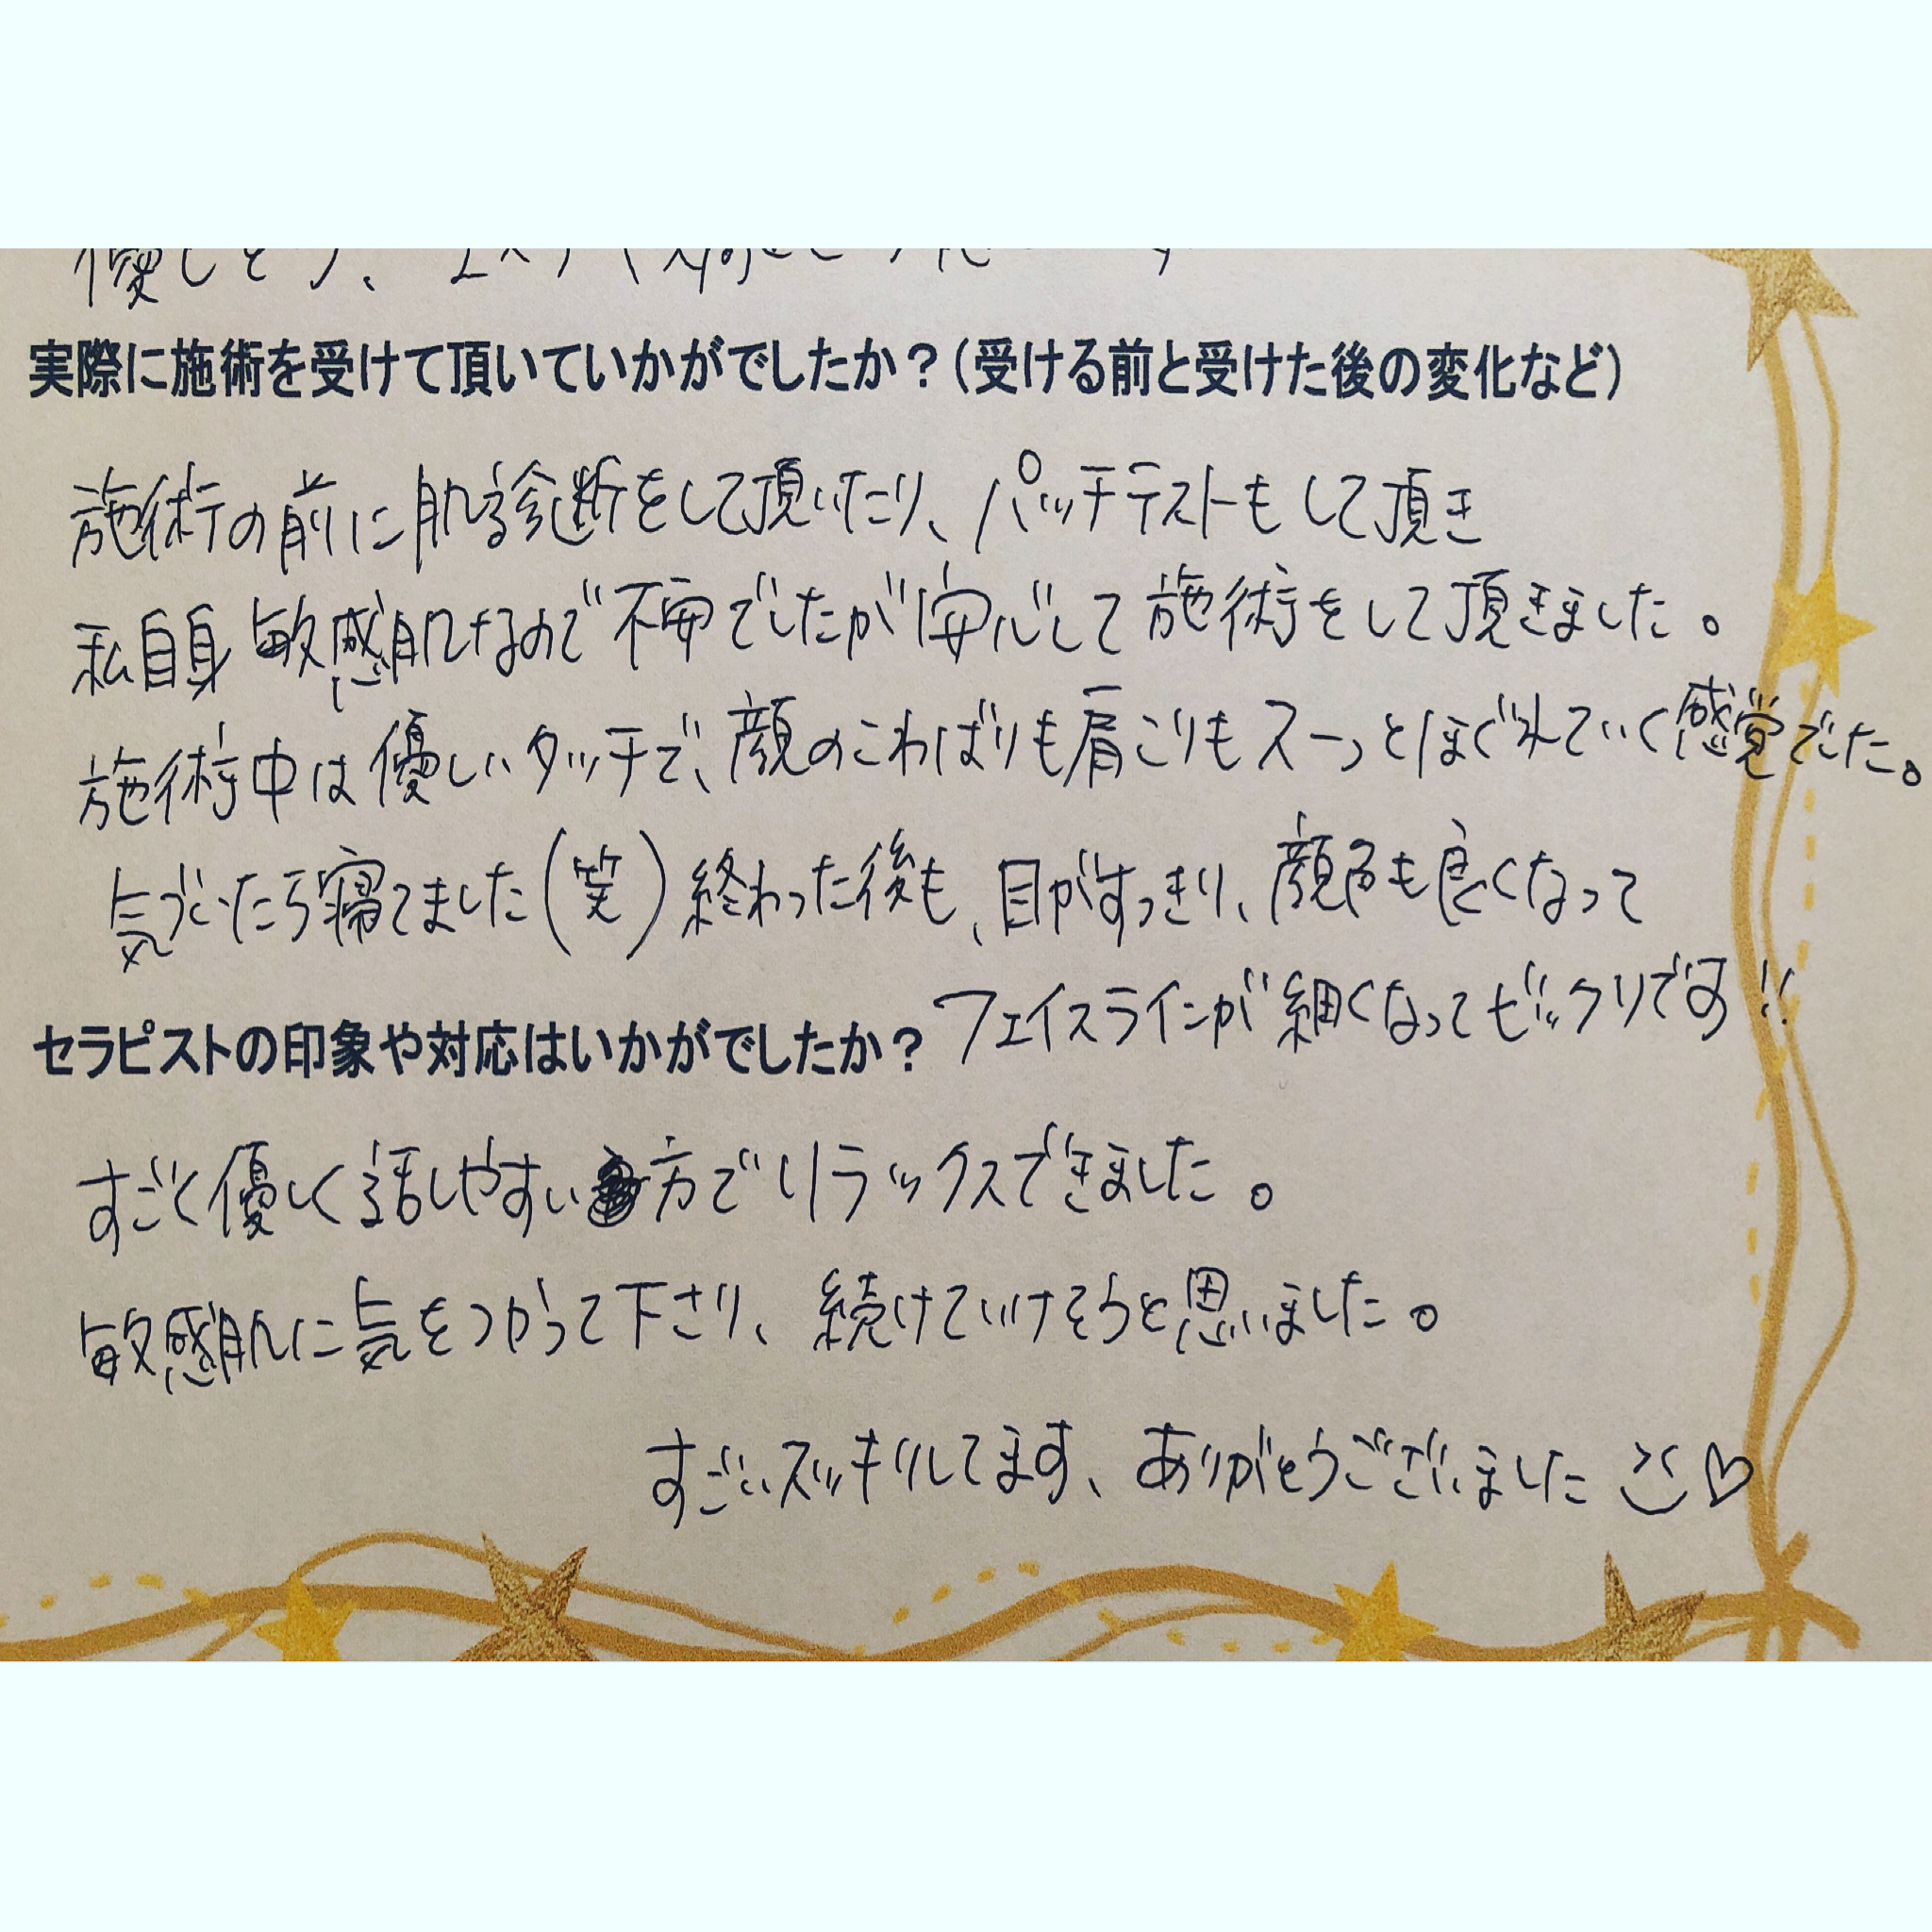 優しそう、エステ
実際に施術を受けて頂いていかがでしたか？（受ける前と受けた後の変化など）
施術の前に肌診断をして頂いたり、パッチテストもして頂き
私自身敏感肌なので不安でしたが安心して施術をして頂きました。
施術中は優しいタッチで、顔のこわばりも肩こりもスーっとほぐれていく感覚でした。
気づいたら寝てました（笑）終わった後も、目がすっきり、顔色も良くなって
フェイスラインが細くなってビックリです!!
セラピストの印象や対応はいかがでしたか？
すごく優しく話しやすい方でリラックスできました。
敏感肌に気をつかって下さり、続けていけそうと思いました。
すごいスッキリしてます、ありがとうございました♡